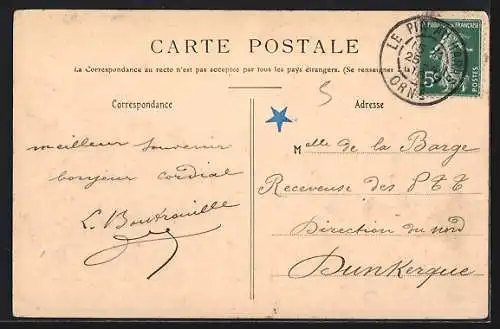 CARTE POSTALE
La Correspondance au recto n'est pas acceptée par tous les pays étrangers. (Se renseigner
Correspondance
Adresse
5
meilleur souvenir
bonjour cordial
L. Boutrouille
Melle de la Barge
Receveuse des PTT
Direction du nord
Dunkerque
LE PIN
ORNE
25
POSTES
5